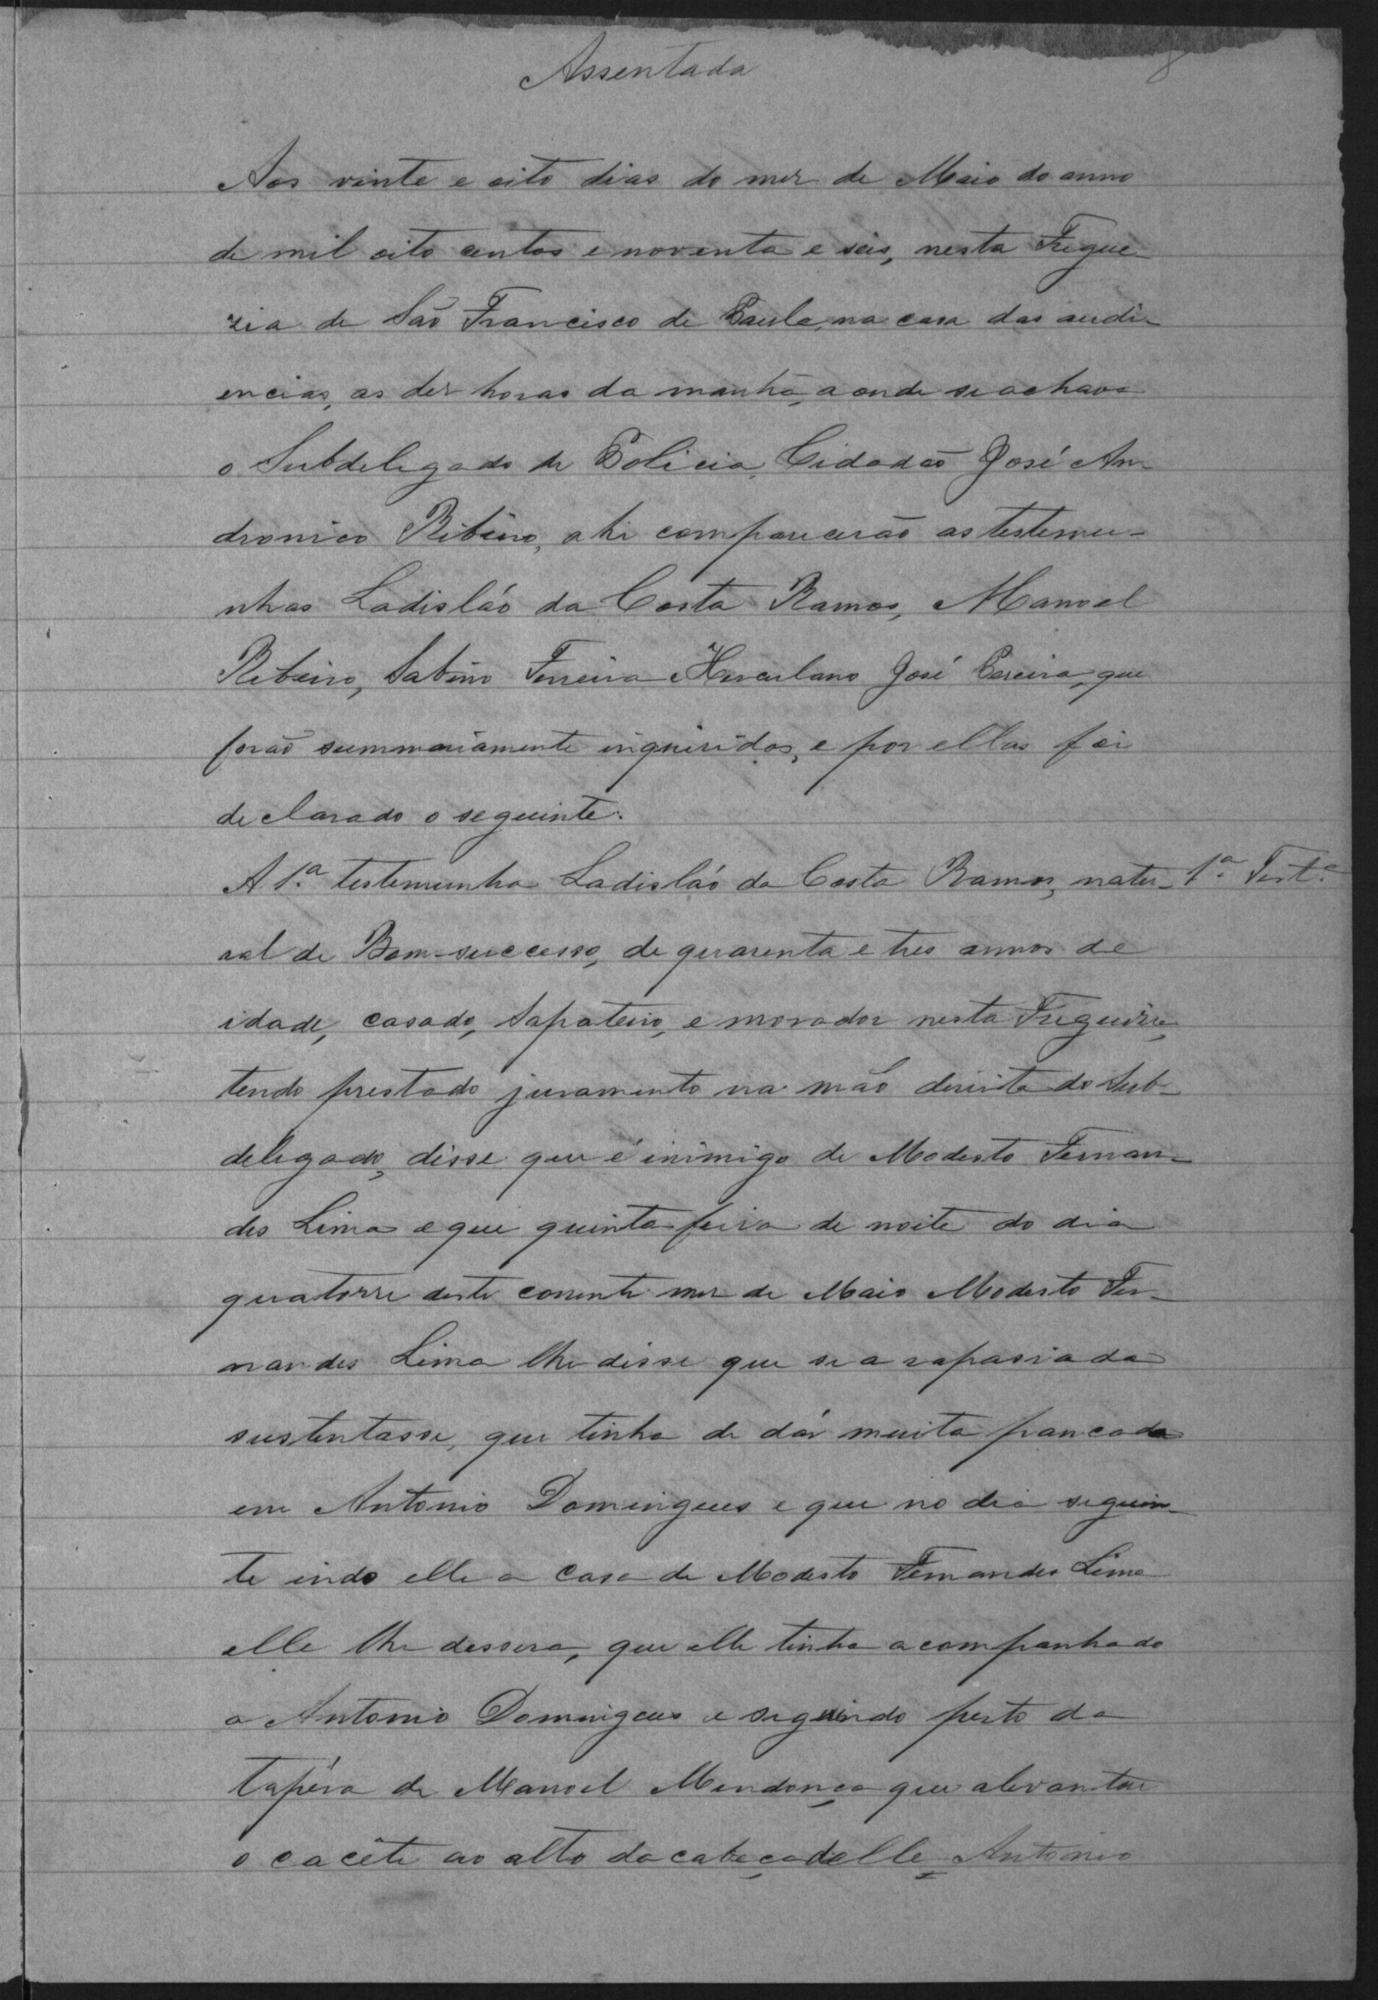 8
Assentada
Aos vinte e oito dias do mez de Maio do anno
de mil oito centos e noventa e seis, nesta Fregue-
zia de São Francisco de Paula, na casa das audi-
encias, as dez horas da manhã, a onde se achava
o Subdelegado de Policia, Cidadão José An-
dronico Ribeiro, ahi comparecerão as testemu-
nhas Ladisláo da Costa Ramos, Manoel
Ribeiro, Sabino Ferreira e Herculano José Pereira, que
forão summariamente inqueridos, e por ellas foi
declarado o seguinte.
A 1.ª testemunha Ladisláo da Costa Ramos, natu- 1.ª Test.ª
ral de Bom-successo, de quarenta e tres annos de
idade, casado, Sapateiro, e morador nesta Fregueizia,
tendo prestado juramento na mão direita do Sub-
delegado, disse que é inimigo de Modesto Fernan-
des Lima e que quinta feira de noite do dia
quatorze deste corrente mez de Maio Modesto Fer-
nandes Lima lhe disse que se a rapasiada
sustentasse, que tinha de dár muita pancada
em Antonio Domingues e que no dia seguin-
te indo elle a casa de Modesto Fernandes Lima
elle lhe dessera, que elle tinha acompanhado
a Antonio Domingues e seguindo perto da
tapéra de Manoel Mendonça que alevantou
o cacête ao alto da cabeça delle Antonio